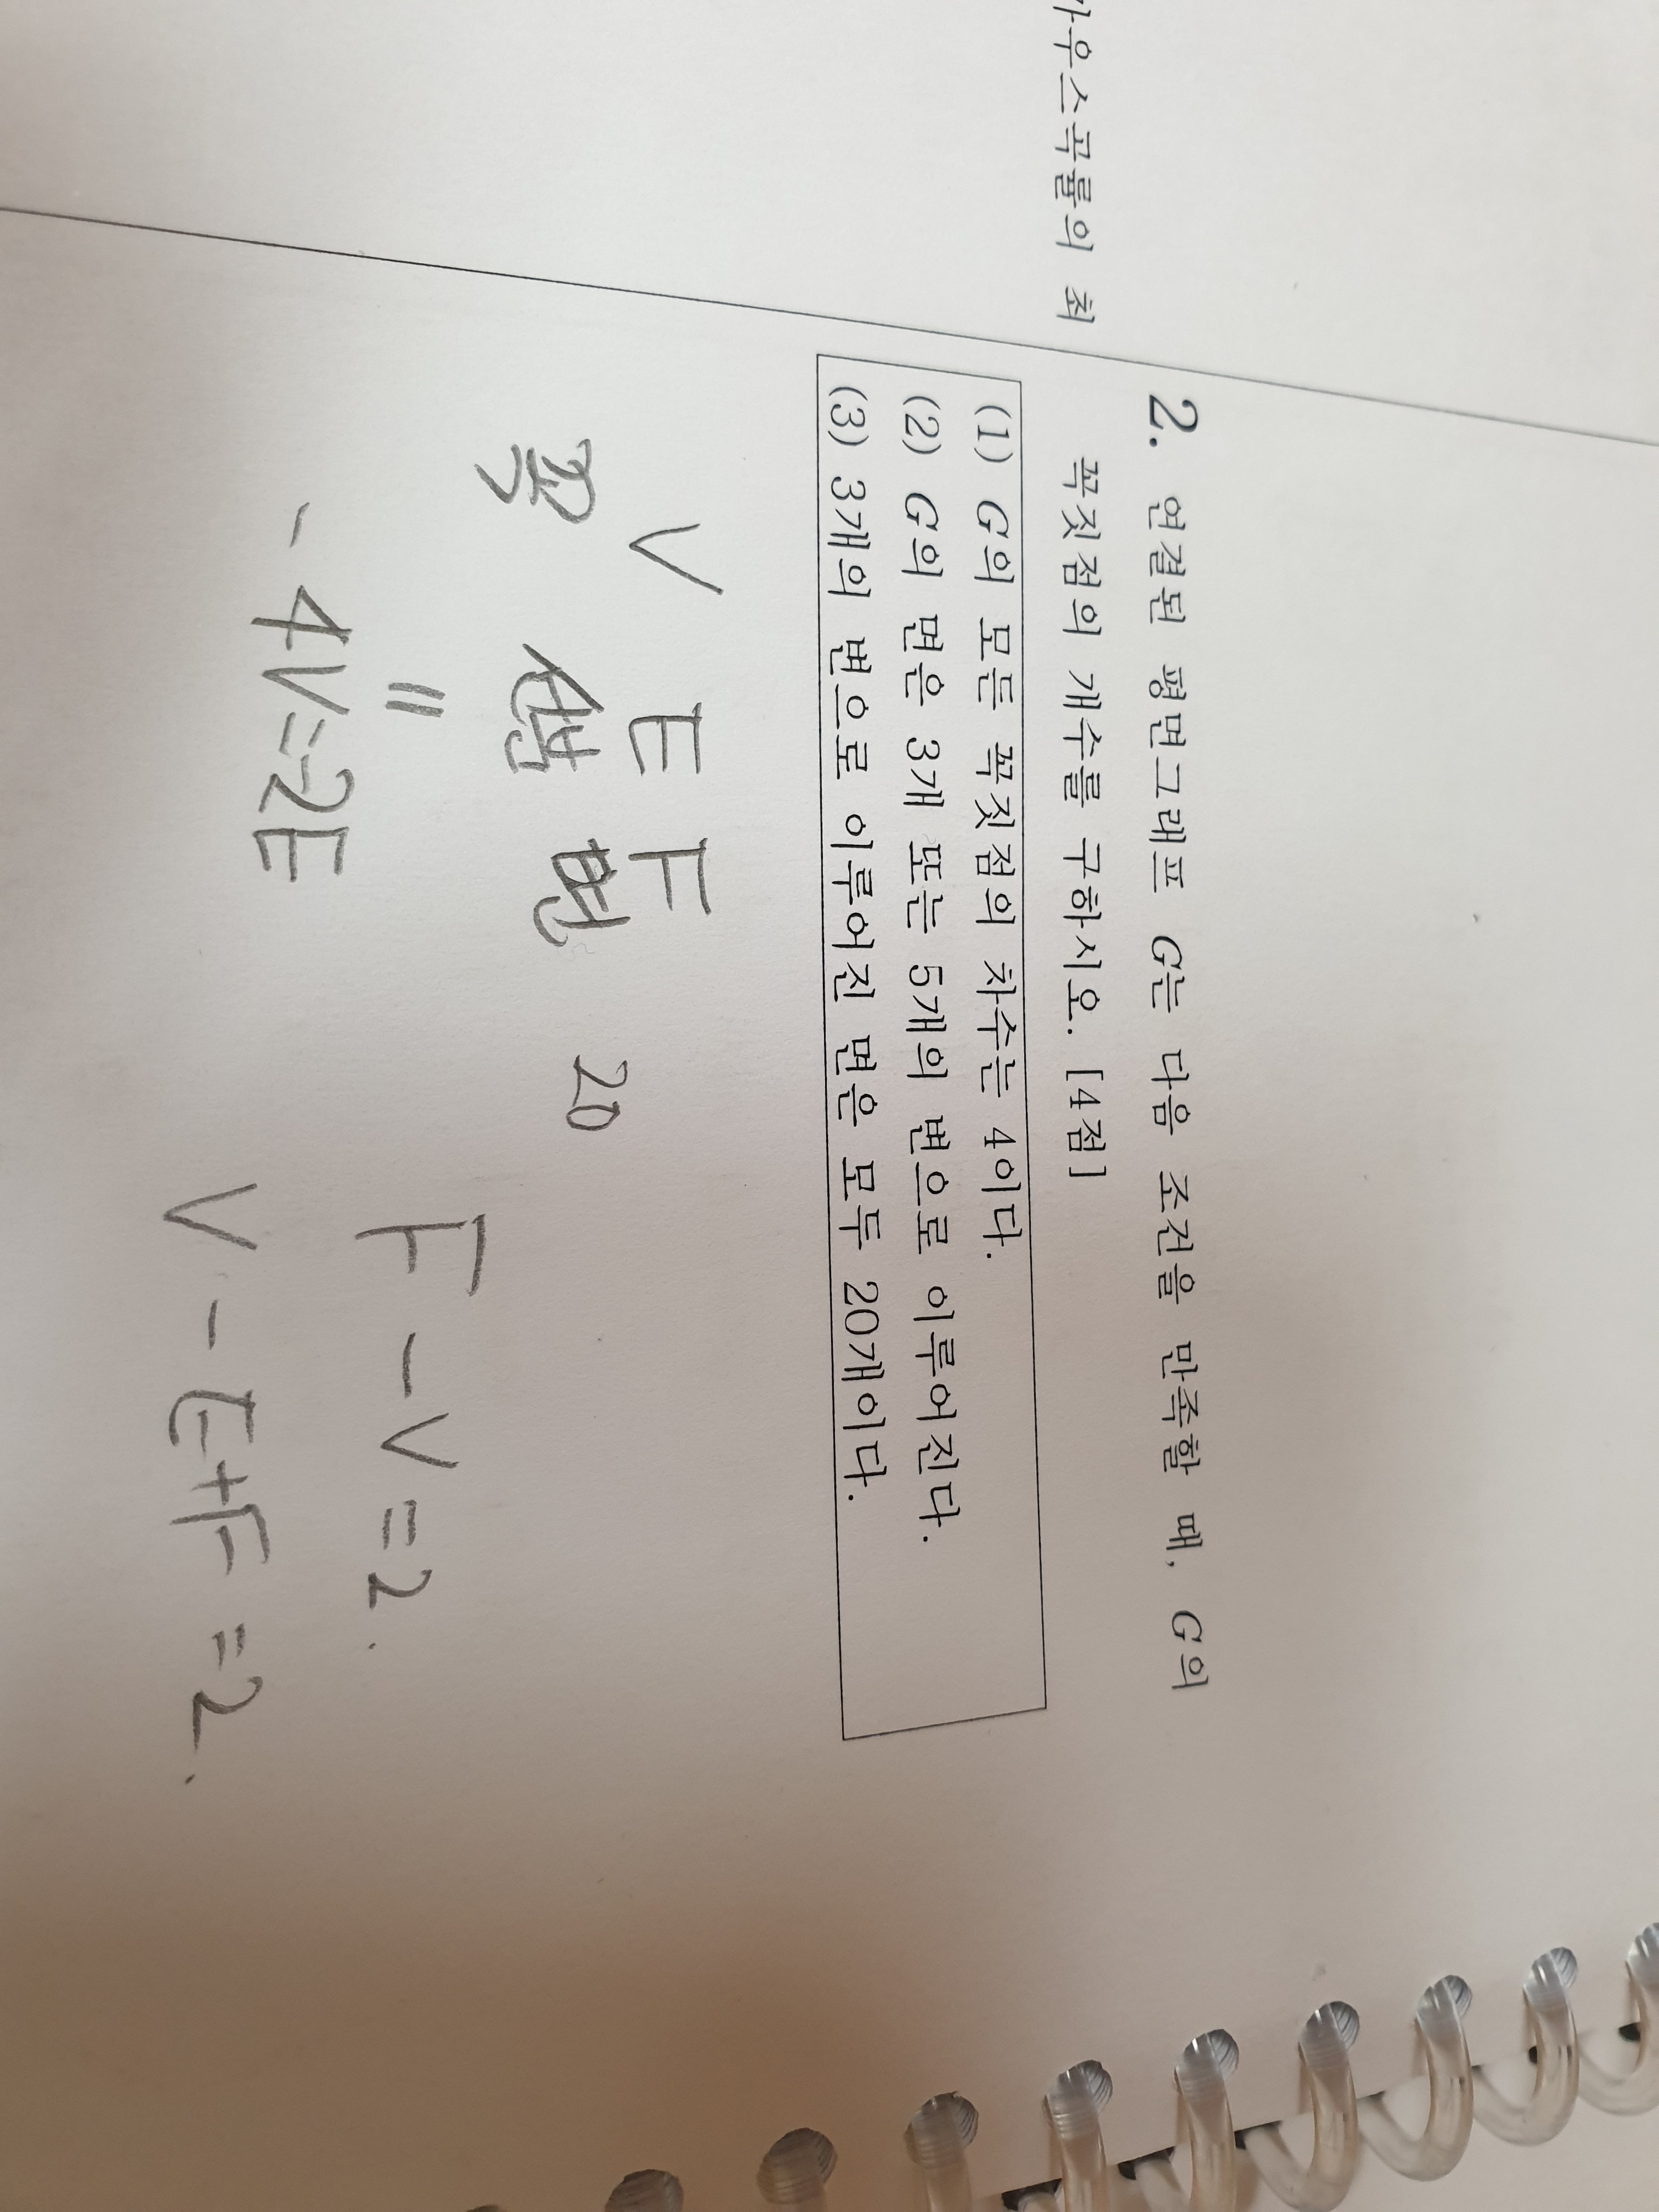 가우스곡률의 최
2. 연결된 평면그래프 G는 다음 조건을 만족할 때, G의
꼭짓점의 개수를 구하시오. [4점]
(1) G의 모든 꼭짓점의 차수는 4이다.
(2) G의 면은 3개 또는 5개의 변으로 이루어진다.
(3) 3개의 변으로 이루어진 면은 모두 20개이다.
V E F
꼭 변 면 20
=
F - V = 2.
- 4V = -2E
V - E + F = 2.